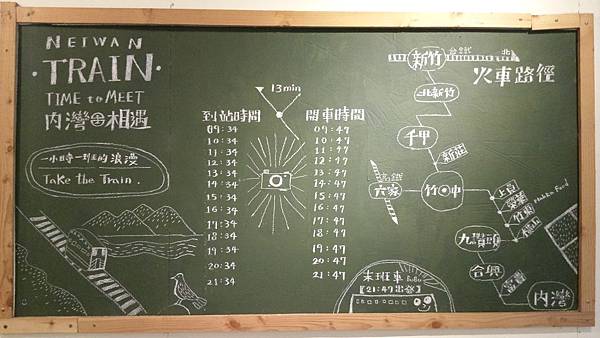 NEIWAN
·TRAIN·
TIME to MEET
內灣相遇
一小時一班的浪漫
Take the Train.
13min
到站時間
09:34
10:34
11:34
12:34
13:34
14:34
15:34
16:34
17:34
18:34
19:34
20:34
21:34
開車時間
09:47
10:47
11:47
12:47
13:47
14:47
15:47
16:47
17:47
18:47
19:47
20:47
21:47
末班車
【21:47出發】
火車路徑
台鐵
北
新竹
北新竹
千甲
新莊
高鐵
六家
竹中
上員
榮華
竹東
橫山
Hakka Food
九讚頭
合興
富貴
內灣